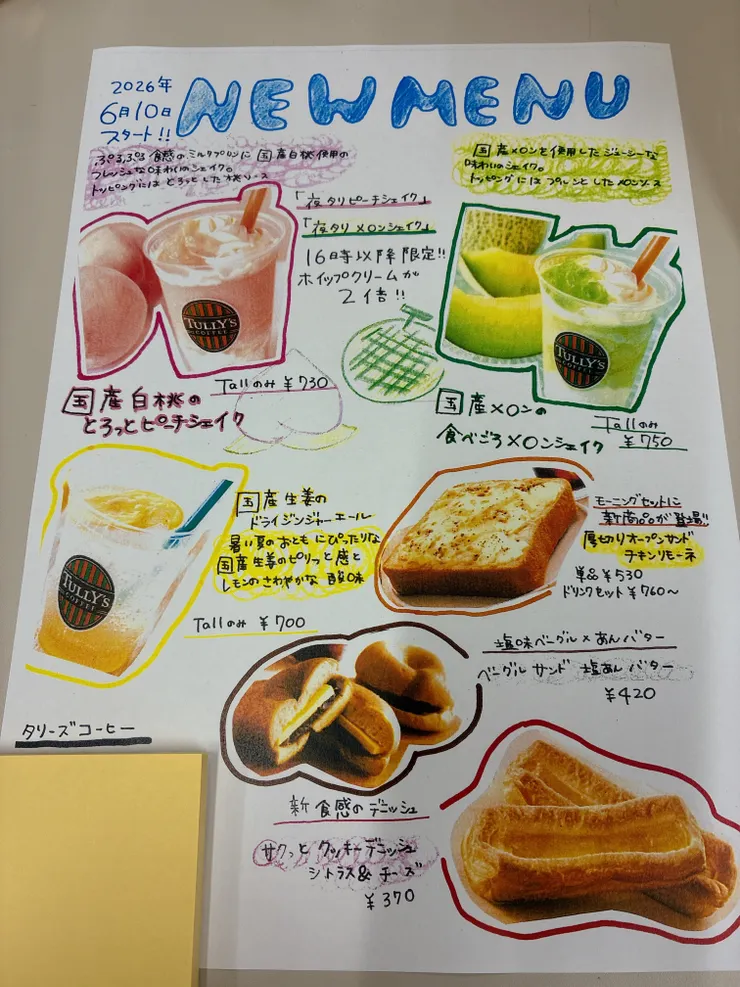 2026年
6月10日
スタート!!
NEW MENU
ぷるぷる食感のミルクプリンに国産白桃使用の
フレッシュな味わいのシェイク。
トッピングにはとろっとした桃ソース
国産メロンを使用したジューシーな
味わいのシェイク。
トッピングにはプルンとしたメロンソース
「夜タリピーチシェイク」
「夜タリメロンシェイク」
16時以降限定!!
ホイップクリームが
2倍!!
TULLY'S
COFFEE
TULLY'S
COFFEE
Tallのみ ¥730
国産白桃の
とろっとピーチシェイク
国産メロンの
食べごろメロンシェイク
Tallのみ
¥750
TULLY'S
COFFEE
国産生姜の
ドライジンジャーエール
暑い夏のおともにぴったりな
国産生姜のピリっと感と
レモンのさわやかな酸味
Tallのみ ¥700
モーニングセットに
新商品が登場!!
厚切りオープンサンド
チキンリモーネ
単品¥530
ドリンクセット¥760〜
塩味ベーグル×あんバター
ベーグルサンド 塩あんバター
¥420
タリーズコーヒー
新食感のデニッシュ
サクっとクッキーデニッシュ
シトラス&チーズ
¥370